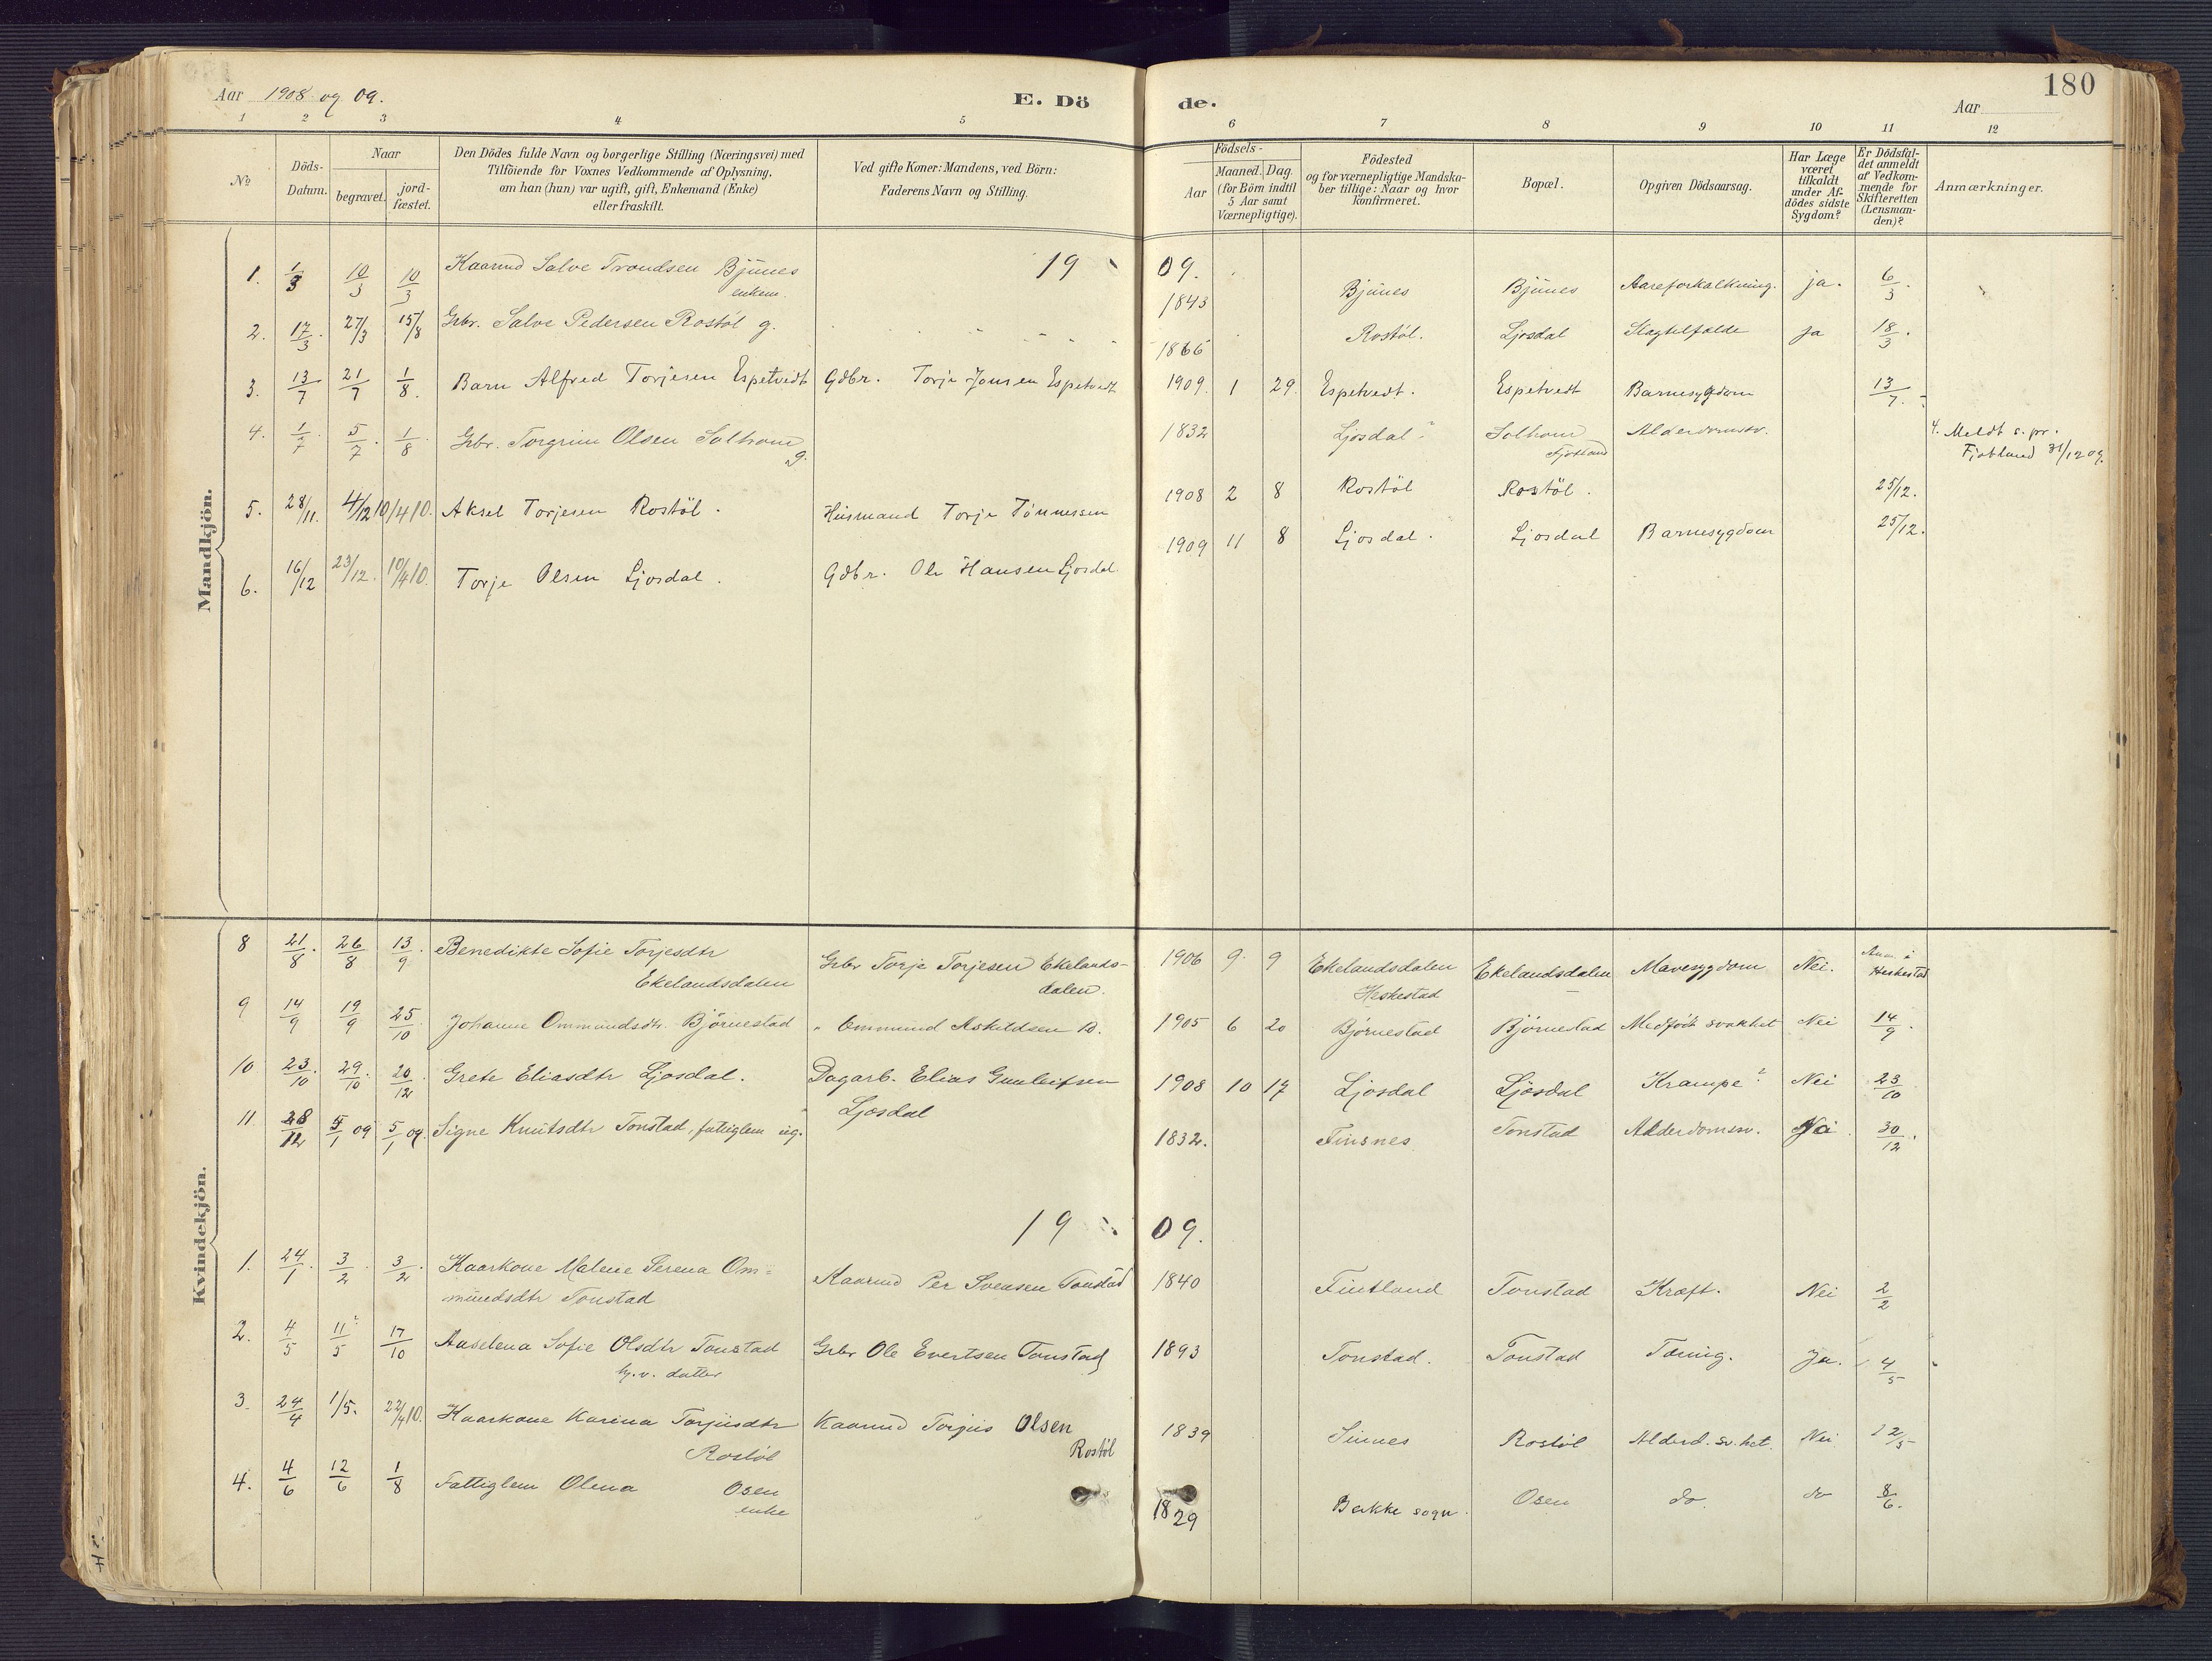 180
Aar 1908 og 09. E. Dö de. Aar
1 2 3 4 5 6 7 8 9 10 11 12
No.
Döds-Datum.
Naar
begravet.
jord-fæstet.
Den Dödes fulde Navn og borgerlige Stilling (Næringsvei) med
Tilföiende for Voxnes Vedkommende af Oplysning,
om han (hun) var ugift, gift, Enkemand (Enke)
eller fraskilt.
Ved gifte Koner: Mandens, ved Börn:
Faderens Navn og Stilling.
Födsels-
Aar
Maaned. Dag.
(for Börn indtil
5 Aar samt
Værnepligtige).
Födested
og for værnepligtige Mandska-
ber tillige: Naar og hvor
konfirmeret.
Bopæl.
Opgiven Dödsaarsag.
Har Læge
været
tilkaldt
under Af-
dödes sidste
Sygdom?
Er Dödsfal-
det anmeldt
af Vedkom-
mende for
Skifteretten
(Lensman-
den)?
Anmærkninger.
Mandkjön.
19 09.
1. 1/3 10/3 10/3 Kaarmd Salve Trondsen Bjünes 1843 Bjünes Bjünes Aareforkalkning. ja. 6/3.
enkem.
2. 17/3. 27/3 15/8 Grbr. Salve Pedersen Rostöl g. 1866 Rostöl. Ljosdal Slagtilfælde ja 18/3.
3. 13/7 21/7 1/8. Barn Alfred Torjesen Espetvedt Gdbr. Torje Jonsen Espetvedt 1909. 1 29. Espetvedt. Espetvedt Barnesygdom 13/7.
4. 1/7. 5/7. 1/8. Grbr. Torgrim Olsen Solhom 1832 Ljosdal? Solhom Alderdomssv. 4. Meldt s. pr.
g. Fjotland Fjotland 31/12 09.
5. 28/11. 4/12 10/4 10. Aksel Torjesen Rostöl. Husmand Torje Tönnessen 1908 2 8 Rostöl Rostöl. 25/12.
6. 16/12 23/12. 10/4 10. Torje Olsen Ljosdal. Gdbr. Ole Hansen Ljosdal 1909 11 8 Ljosdal. Ljosdal Barnesygdom 25/12.
Kvindekjön.
8 21/8. 26/8 13/9. Benedikte Sofie Torjesdtr Grbr Torje Torjesen Ekelands- 1906 9 9 Ekelandsdalen Ekelandsdalen Mavesygdom Nei. Anm. i
Ekelandsdalen dalen. Heskestad Heskestad
9 14/9 19/9 25/10 Johanne Ommundsdtr. Björnestad " Ommund Askildsen B. 1905 6 20 Björnestad Björnestad Medfödt svakhet Nei 14/9.
10 23/10. 29/10. 20/12. Grete Eliasdtr Ljosdal. Dagarb. Elias Gunleifsen 1908 10 17 Ljosdal Ljösdal Krampe? Nei 23/10
Ljosdal
11. 28/12 5/1 09 5/1 09. Signe Knutsdtr Tonstad, fattiglem ug. 1832. Finsnes Tonstad Alderdomssv. 30/12.
19 09.
1. 24/1. 3/2. 3/2. Kaarkone Malene Serena Om- Kaarmd Per Svensen Tonstad 1840 Fintland Tonstad Kræft. Nei 2/2
mundsdtr Tonstad
2. 4/5 11/5? 17/10 Aaselena Sofie Olsdtr Tonstad Grbr Ole Evertsen Tonstad 1893 Tonstad. Tonstad Tæring. Ja. 4/5
hj.v. datter
3. 24/4 1/5. 22/4 10. Kaarkone Karina Torjusdtr Kaarmd Torjus Olsen 1839 Sinnes Rostöl Alderd.sv.het. Nei 12/5
Rostöl Rostöl
4. 4/6 12/6 1/8 Fattiglem Olena Osen 1829 Bakke sogn. Osen do. do 8/6.
enke